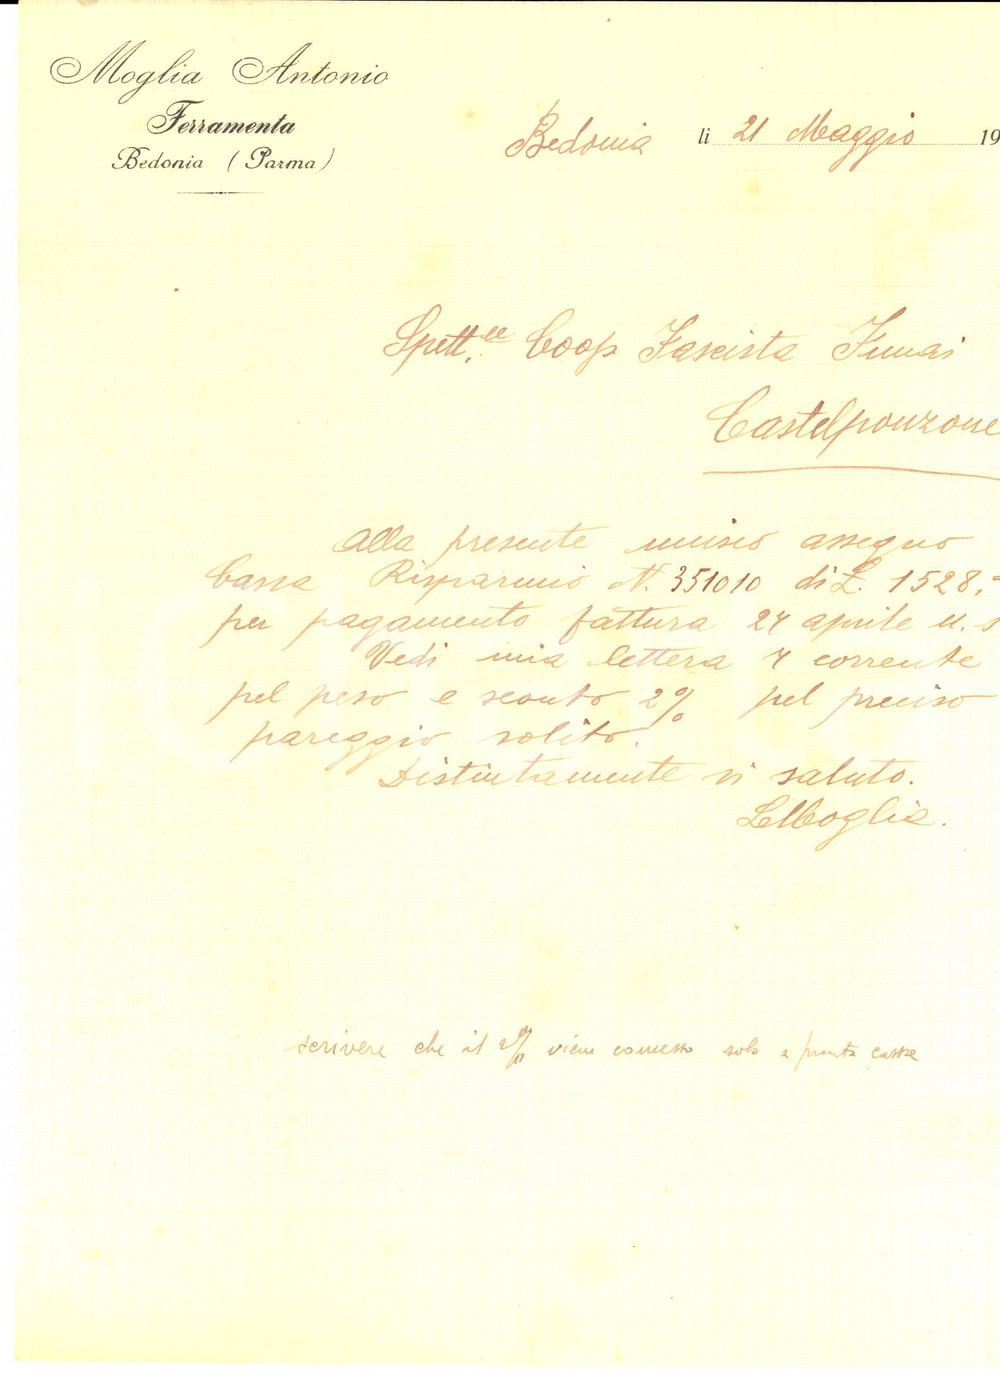 Moglia Antonio
Ferramenta
Bedonia (Parma)
Bedonia li 21 Maggio 19
Spett.le Coop Fascista Funai
Castelponzone
Alla presente unisco assegno
Cassa Risparmio N. 351010 di L. 1528,=
per pagamento fattura 24 aprile u. s
Vedi mia lettera 7 corrente
pel peso e sconto 2% pel preciso
pareggio solito.
Distintamente vi saluto.
Moglia.
scrivere che il 2% viene concesso solo a pronta cassa